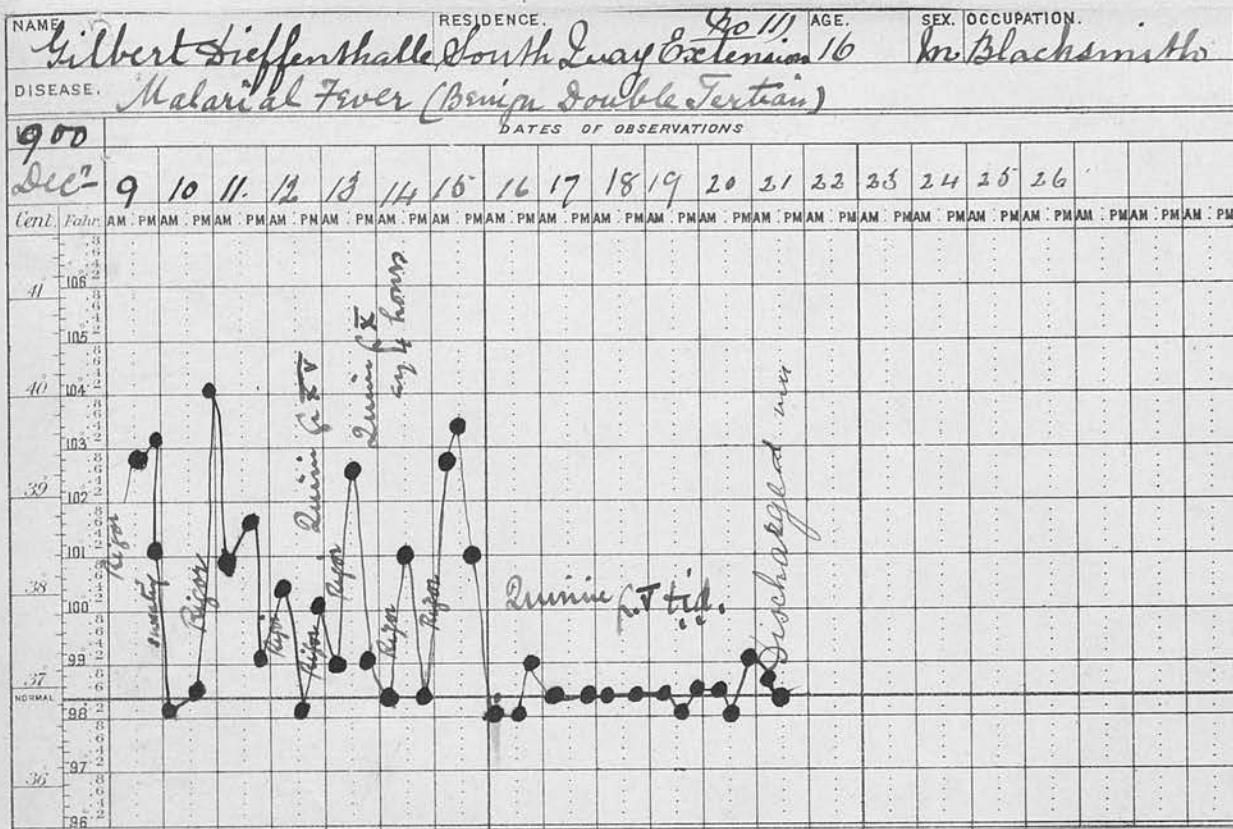 NAME RESIDENCE. No 111 AGE. SEX. OCCUPATION.
Gilbert Dieffenthalle South Quay Extension 16 M Blacksmith
DISEASE. Malarial Fever (Benign Double Tertian)
1900 DATES OF OBSERVATIONS
Dec 9 10 11. 12 13 14 15 16 17 18 19 20 21 22 23 24 25 26
Cent. Fahr. AM PM AM PM AM PM AM PM AM PM AM PM AM PM AM PM AM PM AM PM AM PM AM PM AM PM AM PM AM PM AM PM AM PM AM PM AM PM AM PM AM PM
41 106°
105°
40° 104°
103°
39 102
101
38° 100
99
37
NORMAL 98
97
36° 96
Rigor
sweating
Rigor
Rigor
Rigor
Quinin gr XV
Rigor
Quinin gr X
4 hours
Rigor
Rigor
Quinine gr. V t.i.d.
Discharged